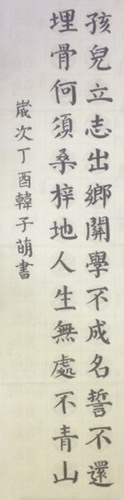 孩兒立志出鄉關學不成名誓不還
埋骨何須桑梓地人生無處不青山
歲次丁酉韓子萌書